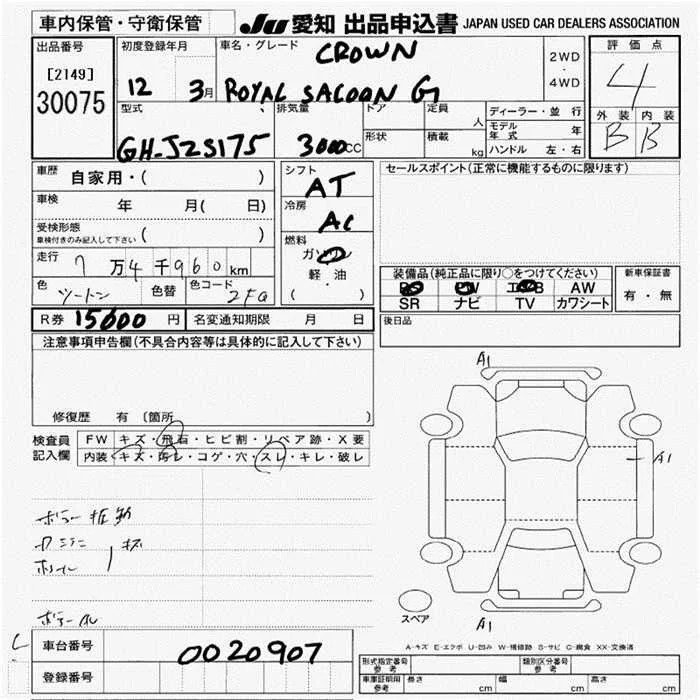 車内保管・守衛保管
JU 愛知 出品申込書 JAPAN USED CAR DEALERS ASSOCIATION
出品番号
[2149]
30075
初度登録年月
12 3月
車名・グレード
CROWN
ROYAL SALOON G
2WD
・
4WD
評価点
4
外装 内装
B B
型式
GH-JZS175
排気量
3000CC
ドア
形状
定員 人
積載 kg
ディーラー・並行
モデル年式 年
ハンドル 左・右
車歴 自家用・( )
車検 年 月( 日)
受検形態
車検付きのみ記入して下さい ( )
走行 7万4千960km
色 ツートン 色替 色コード 2FG
シフト
AT
冷房
AC
燃料
ガソリン
軽・油
( ・ )
セールスポイント(正常に機能するものに限ります)
装備品(純正品に限り○をつけてください)
PS PW エアB AW
SR ナビ TV カワシート
新車保証書
有・無
R券 15600円 名変通知期限 月 日
後日品
注意事項申告欄(不具合内容等は具体的に記入して下さい)
修復歴 有 〔箇所 〕
検査員記入欄
FW キズ・飛石・ヒビ割・リペア跡・X要
内装 キズ・汚レ・コゲ・穴・スレ・キレ・破レ
A1
A1
A1
スペア
A-キズ E-エクボ U-凹み W-補修跡 S-サビ C-腐食 XX-交換済
車台番号 0020907
登録番号
型式指定番号 参考
類別区分番号 参考
車庫証明用 参考 長さ cm 幅 cm 高さ cm